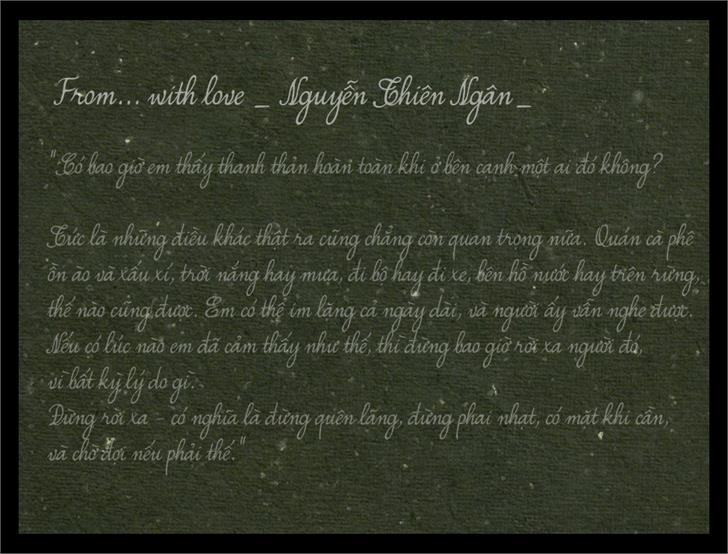 From... with love _ Nguyễn Thiên Ngân _
"Có bao giờ em thấy thanh thản hoàn toàn khi ở bên cạnh một ai đó không?
Tức là những điều khác thật ra cũng chẳng còn quan trọng nữa. Quán cà phê
ồn ào và xấu xí, trời nắng hay mưa, đi bộ hay đi xe, bên hồ nước hay trên rừng,
thế nào cũng được. Em có thể im lặng cả ngày dài, và người ấy vẫn nghe được.
Nếu có lúc nào em đã cảm thấy như thế, thì đừng bao giờ rời xa người đó,
vì bất kỳ lý do gì.
Đừng rời xa - có nghĩa là đừng quên lãng, đừng phai nhạt, có mặt khi cần,
và chờ đợi nếu phải thế."